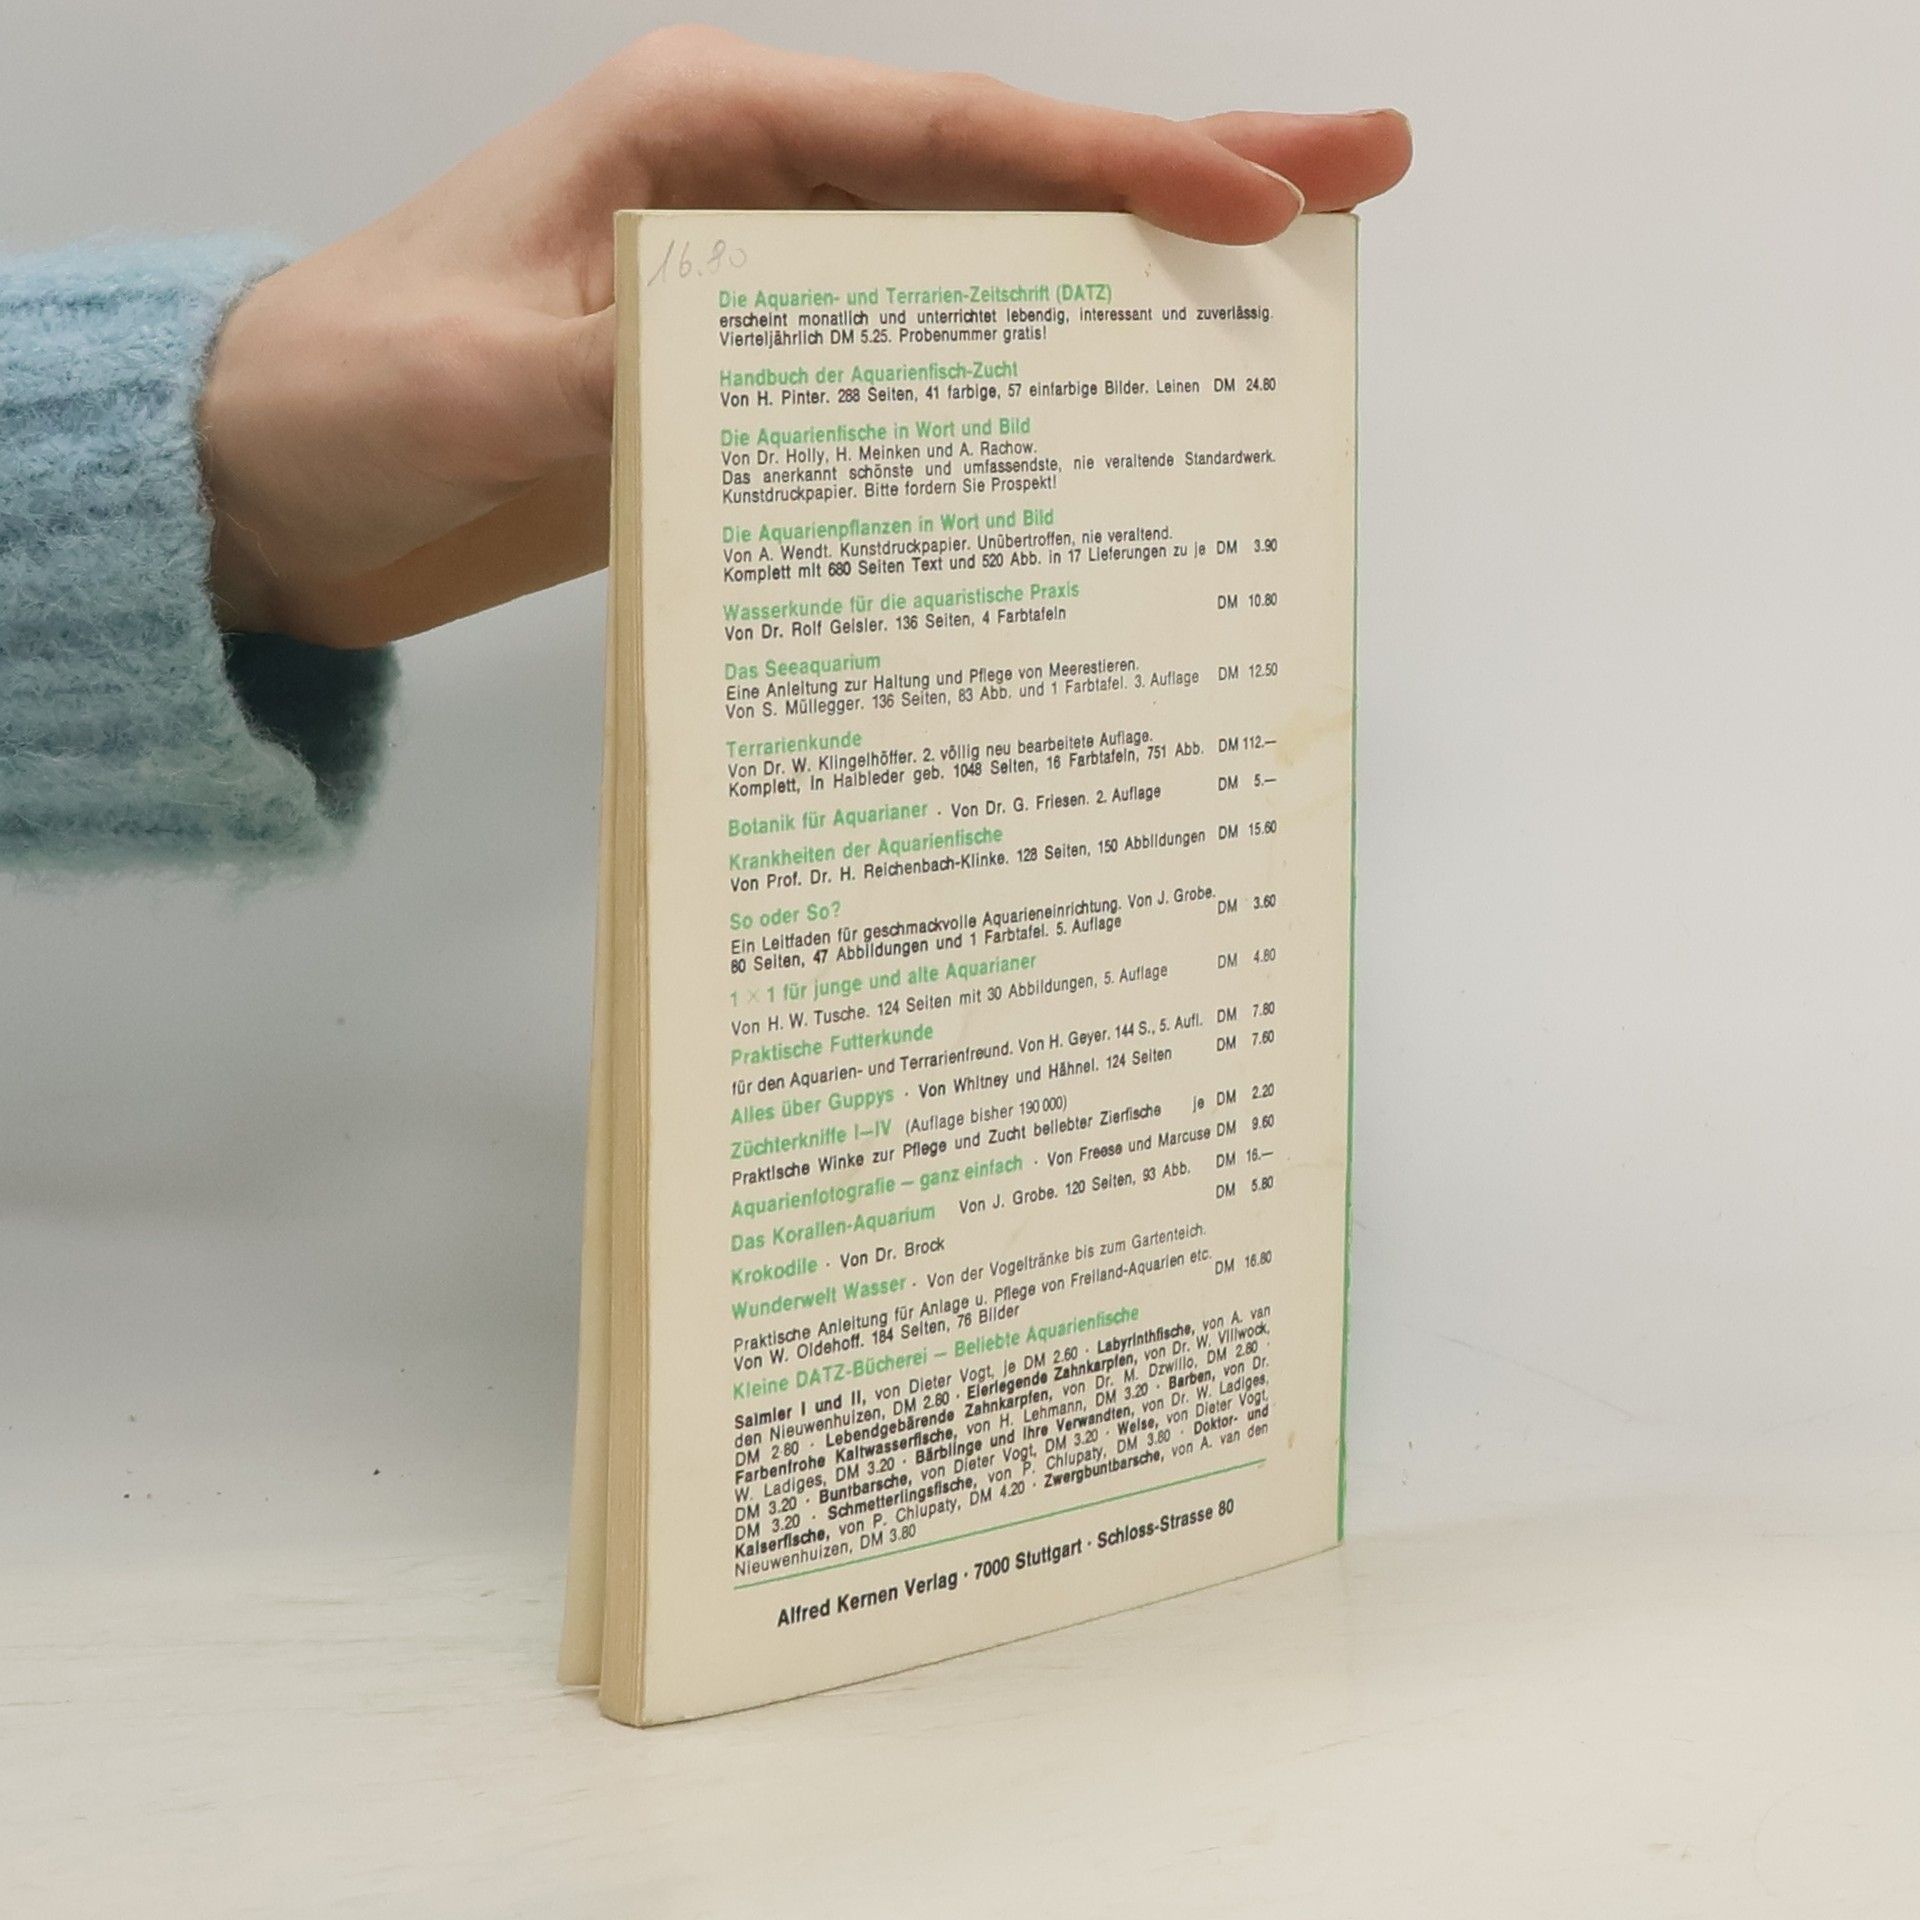 16.80
Die Aquarien- und Terrarien-Zeitschrift (DATZ)
erscheint monatlich und unterrichtet lebendig, interessant und zuverlässig.
Vierteljährlich DM 5.25. Probenummer gratis!
Handbuch der Aquarienfisch-Zucht
Von H. Pinter. 288 Seiten, 41 farbige, 57 einfarbige Bilder. Leinen DM 24.80
Die Aquarienfische in Wort und Bild
Von Dr. Holly, H. Meinken und A. Rachow.
Das anerkannt schönste und umfassendste, nie veraltende Standardwerk.
Kunstdruckpapier. Bitte fordern Sie Prospekt!
Die Aquarienpflanzen in Wort und Bild
Von A. Wendt. Kunstdruckpapier. Unübertroffen, nie veraltend.
Komplett mit 680 Seiten Text und 520 Abb. in 17 Lieferungen zu je DM 3.90
Wasserkunde für die aquaristische Praxis
Von Dr. Rolf Geisler. 136 Seiten, 4 Farbtafeln DM 10.80
Das Seeaquarium
Eine Anleitung zur Haltung und Pflege von Meerestieren.
Von S. Müllegger. 136 Seiten, 83 Abb. und 1 Farbtafel. 3. Auflage DM 12.50
Terrarienkunde
Von Dr. W. Klingelhöffer. 2. völlig neu bearbeitete Auflage.
Komplett, in Halbleder geb. 1048 Seiten, 16 Farbtafeln, 751 Abb. DM 112.—
Botanik für Aquarianer · Von Dr. G. Friesen. 2. Auflage DM 5.—
Krankheiten der Aquarienfische
Von Prof. Dr. H. Reichenbach-Klinke. 128 Seiten, 150 Abbildungen DM 15.60
So oder So?
Ein Leitfaden für geschmackvolle Aquarieneinrichtung. Von J. Grobe.
80 Seiten, 47 Abbildungen und 1 Farbtafel. 5. Auflage DM 3.60
1 × 1 für junge und alte Aquarianer
Von H. W. Tusche. 124 Seiten mit 30 Abbildungen, 5. Auflage DM 4.80
Praktische Futterkunde
für den Aquarien- und Terrarienfreund. Von H. Geyer. 144 S., 5. Aufl. DM 7.80
Alles über Guppys · Von Whitney und Hähnel. 124 Seiten DM 7.60
Züchterkniffe I—IV (Auflage bisher 190 000)
Praktische Winke zur Pflege und Zucht beliebter Zierfische je DM 2.20
Aquarienfotografie — ganz einfach · Von Freese und Marcuse DM 9.60
Das Korallen-Aquarium Von J. Grobe. 120 Seiten, 93 Abb. DM 16.—
Krokodile · Von Dr. Brock DM 5.80
Wunderwelt Wasser · Von der Vogeltränke bis zum Gartenteich.
Praktische Anleitung für Anlage u. Pflege von Freiland-Aquarien etc.
Von W. Oldehoff. 184 Seiten, 76 Bilder DM 16.80
Kleine DATZ-Bücherei — Beliebte Aquarienfische
Salmler I und II, von Dieter Vogt, je DM 2.60 · Labyrinthfische, von A. van
den Nieuwenhuizen, DM 2.80 · Eierlegende Zahnkarpfen, von Dr. W. Villwock,
DM 2.80 · Lebendgebärende Zahnkarpfen, von Dr. M. Dzwillo, DM 2.80 ·
Farbenfrohe Kaltwasserfische, von H. Lehmann, DM 3.20 · Barben, von Dr.
W. Ladiges, DM 3.20 · Bärblinge und ihre Verwandten, von Dr. W. Ladiges,
DM 3.20 · Buntbarsche, von Dieter Vogt, DM 3.20 · Welse, von Dieter Vogt,
DM 3.20 · Schmetterlingsfische, von P. Chlupaty, DM 3.80 · Doktor- und
Kaiserfische, von P. Chlupaty, DM 4.20 · Zwergbuntbarsche, von A. van den
Nieuwenhuizen, DM 3.80
Alfred Kernen Verlag · 7000 Stuttgart · Schloss-Strasse 80